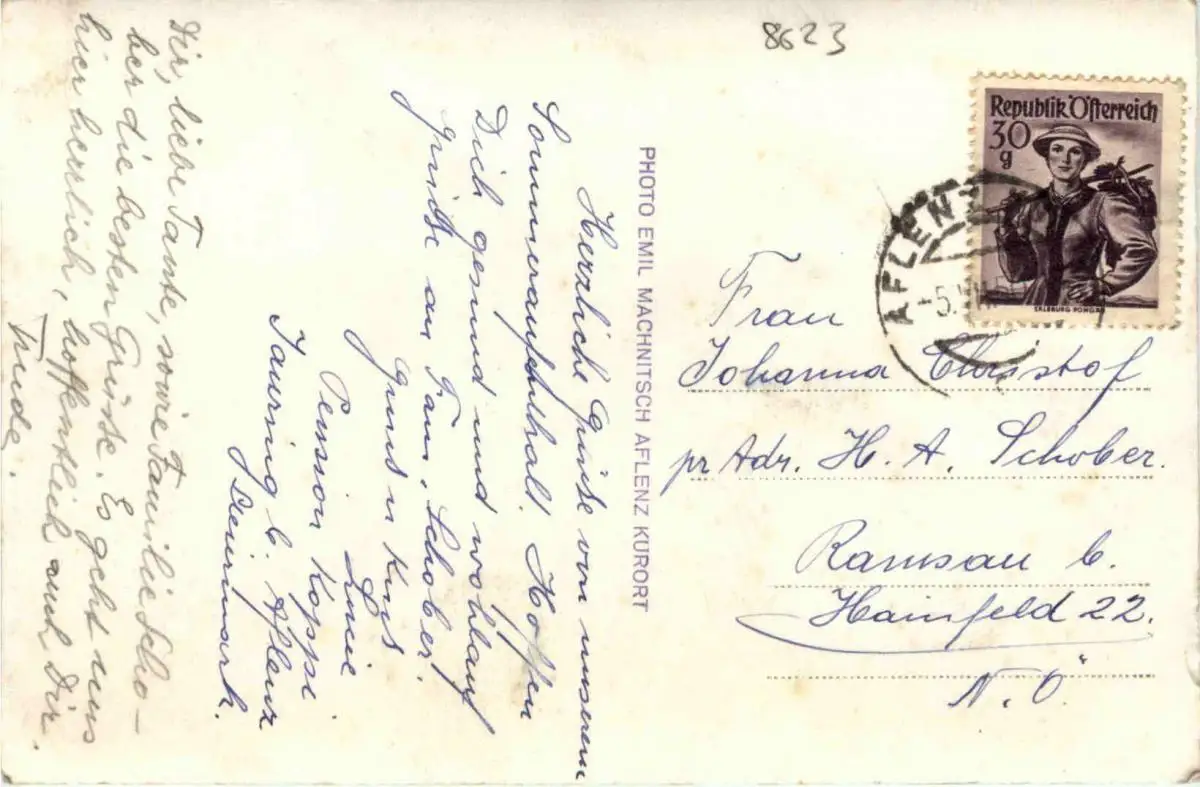 8623
Republik Österreich
30
g
SALZBURG PONGAU
AFLENZ
-5.
Frau
Johanna Christof
pr Adr. H. A. Schober.
Ramsau b.
Hainfeld 22.
N. Ö
PHOTO EMIL MACHNITSCH AFLENZ KURORT
Herzliche Grüße von unserem
Sommeraufenthalt. Hoffen
Dich gesund und wohlauf
grüße an Fam. Schober.
Gruss u Kuss
Pension Koppi
Jauring b. Aflenz
Steiermark.
Dir, liebe Tante, sowie Familie Scho-
ber die besten Grüsse. Es geht uns
hier herrlich, hoffentlich auch Dir.
Trude.